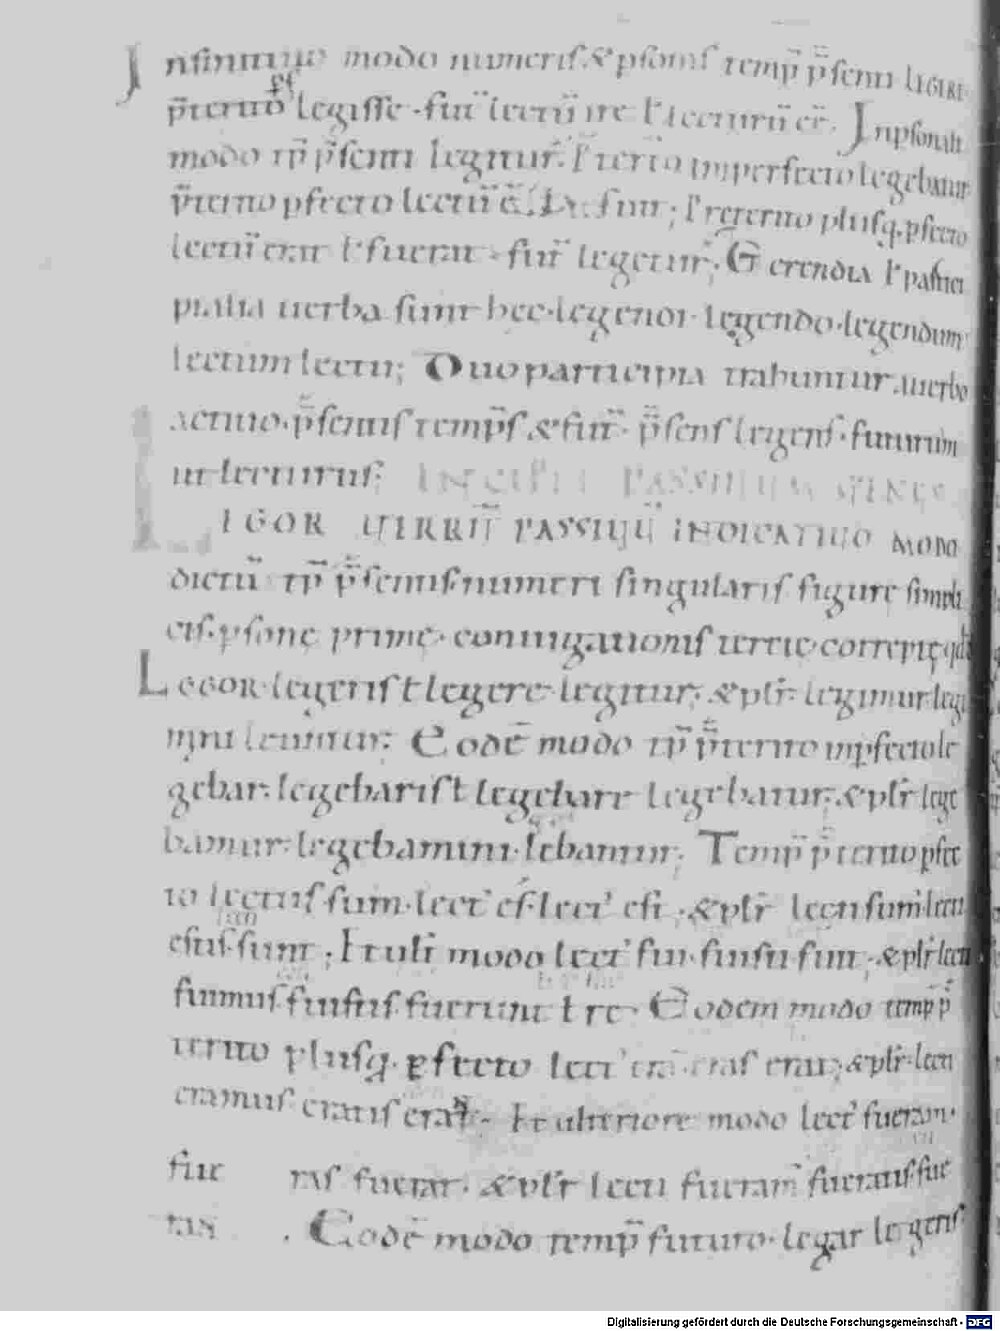 Infinitiuo modo numeris & psonis temp̄ p̄senti LEGERE
p̄terito legisse · fut̄ lectū ire ł lecturū eē. Inpsonali
modo tp̄ p̄senti legitur. P̄terito imperfecto legebatur
p̄terito pfecto lectū ē ł fuit; Preterito plusq̄ pfecto
lectū erat ł fuerat · fut̄ legetur; Gerendia ł partici
pialia uerba sunt hec · legendi · legendo · legendum
lectum lectu; Duo participia trahuntur a uerbo
actiuo · p̄sentis temp̄s & fut̄ · p̄sens legens · futurum
ut lecturus; INCIPIT PASSIUUM
LEGOR UERBŪ PASSIUŪ INDICATIUO MODO
dictū tp̄ p̄sentis · numeri singularis figure simpli
cis · psonę primę · coniugationis tertię correptę qd
LEGOR · legeris ł legere · legitur; & plr̄ · legimur legi
mini leguntur; Eodē modo tp̄ p̄terito inpfecto le
gebar · legebaris ł legebare legebatur; & plr̄ lege
bamur · legebamini · lebantur; Temp̄ p̄terito pfec
to lectus sum · lect' es · lect' est; & plr̄ lecti sum' lecti
estis · sunt; Et ult̄ modo lect' fui · fuisti fuit; & plr̄ lecti
fuimus fuistis fuerunt ł re · Eodem modo temp̄ p̄
terito plusq̄ · pfecto lect' erā · eras erat; & plr̄ · lecti
eramus eratis erant · Et ulteriore modo lect' fueram ·
fue ras fuerat · & plr̄ lecti fueram' fueratis fue
rant . Eodē modo temp̄ futuro · legar legeris